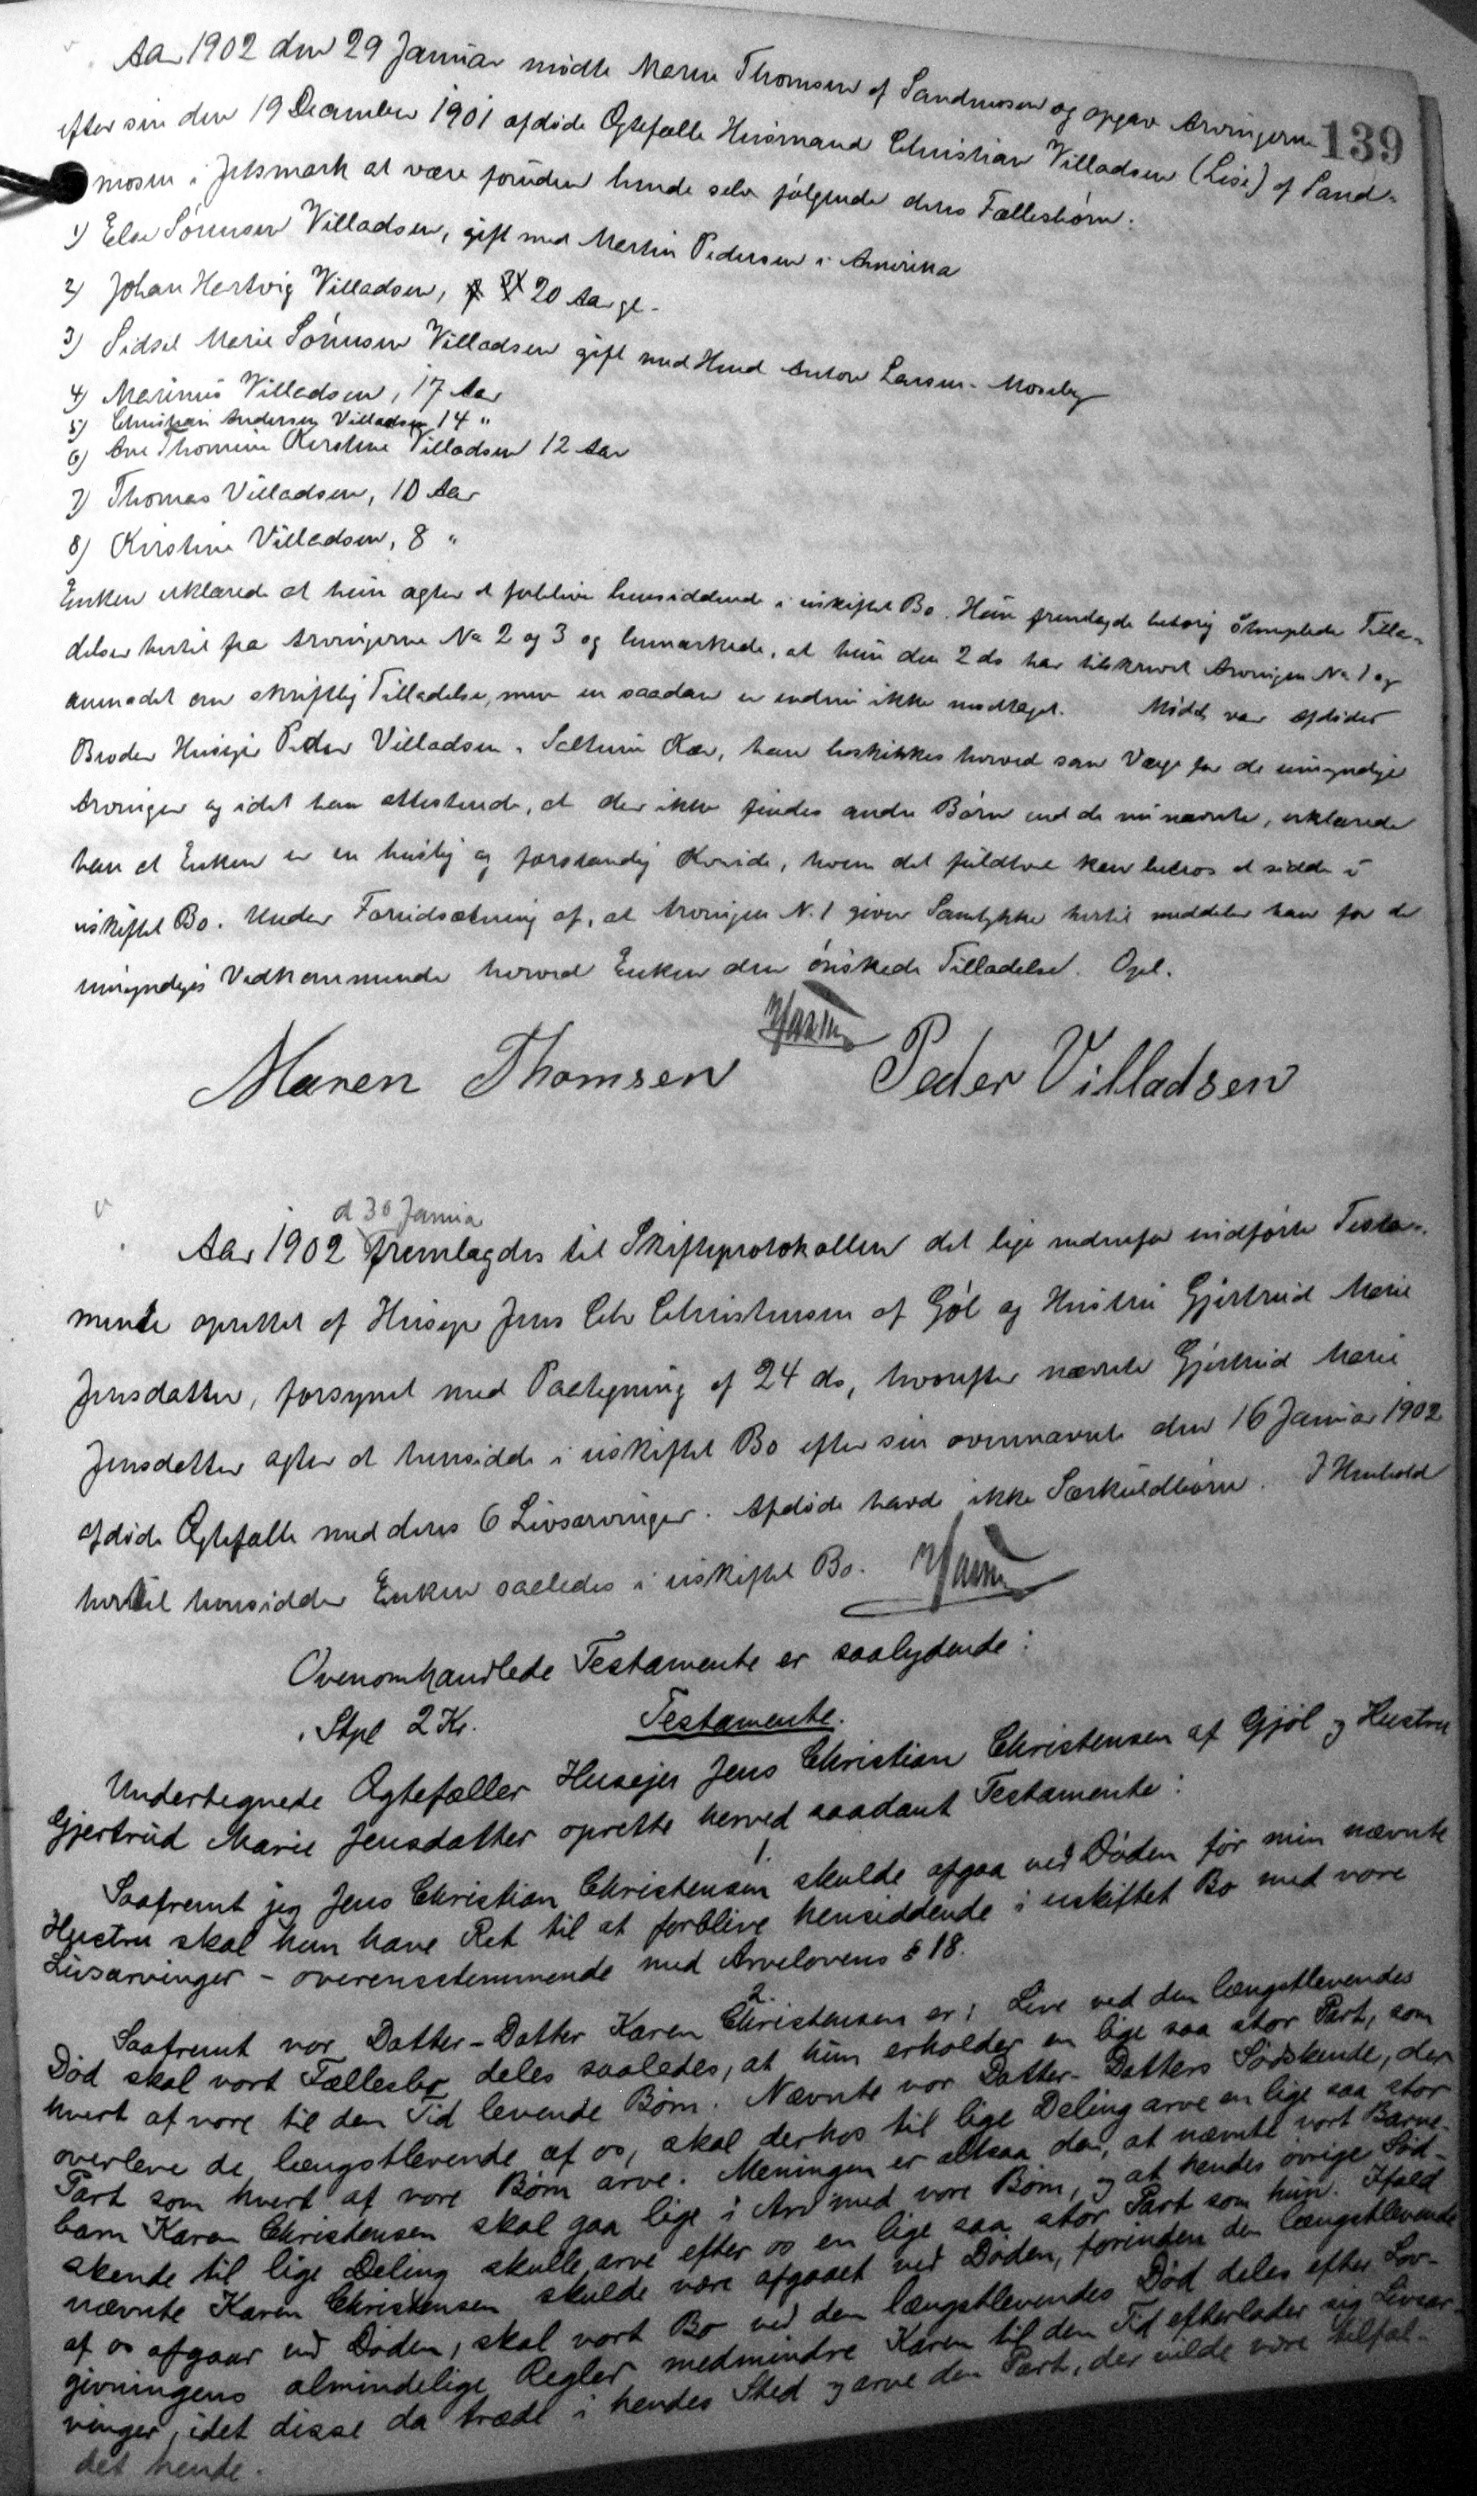 139
Aar 1902 den 29 Januar mødte Maren Thomsen af Sandmosen og opgav Arvingerne
efter sin den 19 December 1901 afdøde Ægtefælle Husmand Christian Villadsen (Lisé) af Sand-
mosen i Jetsmark at være foruden hende selv følgende deres Fællesbørn:
1) Else Sørensen Villadsen, gift med Martin Pedersen i Amerika
2) Johan Hertvig Villadsen, 20 Aar gl.
3) Sidsel Marie Sørensen Villadsen gift med Hmd Anton Larsen - Moseby
4) Marinus Villadsen, 17 Aar
5) Christian Andersen Villadsen 14 "
6) Ane Thomine Kirstine Villadsen 12 Aar
7) Thomas Villadsen, 10 Aar
8) Kirstine Villadsen, 8 "
Enken erklærede at hun agter at forblive hensiddende i uskiftet Bo. Hun fremlagde behørig stemplede Tilla-
delser hertil fra Arvingerne No 2 og 3 og bemærkede, at hun den 2 ds har tilskrevet Arvingen No 1 og
anmodet om skriftlig Tilladelse, men en saadan er endnu ikke modtaget. Mødt var afdødes
Broder Husejer Peder Villadsen i Saltum Kær, han beskikkes herved som Værge for de umyndige
Arvinger og idet han attesterede, at der ikke findes andre Børn end de nu nævnte, erklærede
han at Enken er en huslig og forstandig Kvinde, hvem det fuldtvel kan betros at sidde i
uskiftet Bo. Under Forudsætning af, at Arvingen N. 1 giver Samtykke hertil meddeler han for de
umyndiges Vedkommende herved Enken den ønskede Tilladelse. Opl.
Maren Thomsen Peder Villadsen
d 30 Januar
Aar 1902 fremlagdes til Skifteprotokollen det lige nedenfor indførte Testa-
mente oprettet af Husejer Jens Chr Christensen af Gøl og Hustru Gjertrud Marie
Jensdatter, forsynet med Paategning af 24 ds, hvorefter nævnte Gjertrud Marie
Jensdatter agter at hensidde i uskiftet Bo efter sin ovennævnte den 16 Januar 1902
afdøde Ægtefælle med deres 6 Livsarvinger. Afdøde havde ikke Særkuldbørn. I Henhold
hertil hensidder Enken saaledes i uskiftet Bo.
Ovenomhandlede Testamente er saalydende:
Stpl 2 Kr. Testamente.
Undertegnede Ægtefæller Husejer Jens Christian Christensen af Gjøl og Hustru
Gjertrud Marie Jensdatter oprette herved saadant Testamente:
1.
Saafremt jeg Jens Christian Christensen skulde afgaa ved Døden før min nævnte
Hustru skal hun have Ret til at forblive hensiddende i uskiftet Bo med vore
Livsarvinger - overensstemmende med Arvelovens § 18.
2.
Saafremt vor Datter-Datter Karen Christensen er i Live ved den længstlevendes
Død skal vort Fællesbo deles saaledes, at hun erholder en lige saa stor Part, som
hvert af vore til den Tid levende Børn. Nævnte vor Datter-Datters Sødskende, der
overleve de længstlevende af os, skal derhos til lige Deling arve en lige saa stor
Part som hvert af vore Børn arve. Meningen er altsaa den, at nævnte vort Barne-
barn Karen Christensen skal gaa lige i Arv med vore Børn, og at hendes øvrige Sød-
skende til lige Deling skulle arve efter os en lige saa stor Part som hun. Ifald
nævnte Karen Christensen skulde være afgaaet ved Døden, forinden den længstlevende
af os afgaar ved Døden, skal vort Bo ved den længstlevendes Død deles efter Lov-
givningens almindelige Regler medmindre Karen til den Tid efterlader sig Livsar-
vinger, idet disse da træde i hendes Sted og arve den Part, der vilde være tilfal-
det hende.